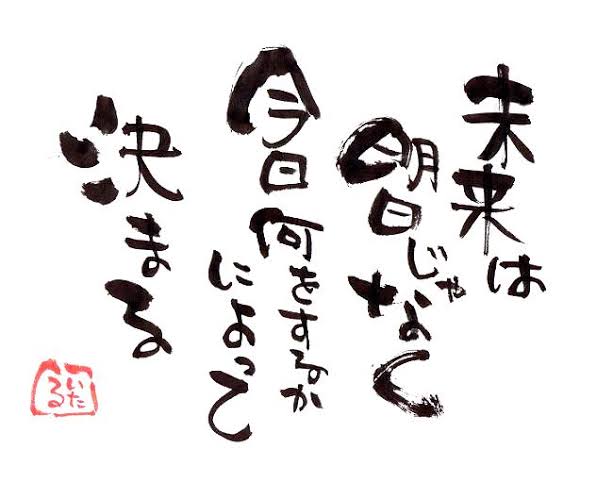 未来は
明日じゃなく
今日何をするか
によって
決まる
いた
る